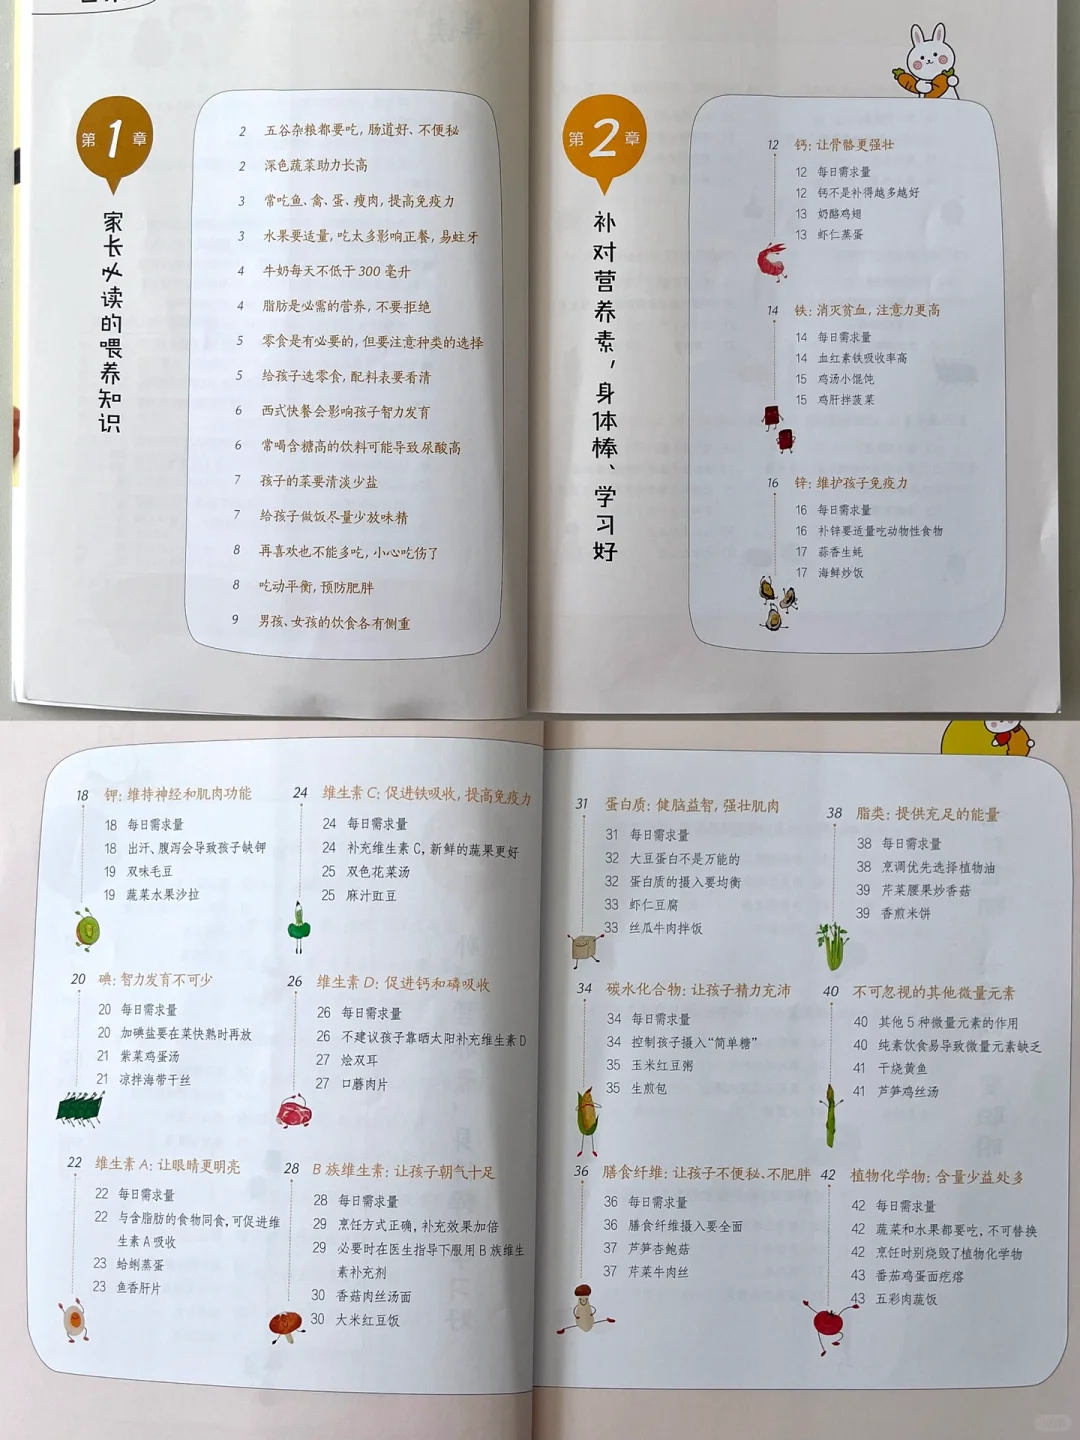 第1章
家长必读的喂养知识
2 五谷杂粮都要吃，肠道好、不便秘
2 深色蔬菜助力长高
3 常吃鱼、禽、蛋、瘦肉，提高免疫力
3 水果要适量，吃太多影响正餐，易蛀牙
4 牛奶每天不低于300毫升
4 脂肪是必需的营养，不要拒绝
5 零食是有必要的，但要注意种类的选择
5 给孩子选零食，配料表要看清
6 西式快餐会影响孩子智力发育
6 常喝含糖高的饮料可能导致尿酸高
7 孩子的菜要清淡少盐
7 给孩子做饭尽量少放味精
8 再喜欢也不能多吃，小心吃伤了
8 吃动平衡，预防肥胖
9 男孩、女孩的饮食各有侧重
第2章
补对营养素，身体棒、学习好
12 钙：让骨骼更强壮
12 每日需求量
12 钙不是补得越多越好
13 奶酪鸡翅
13 虾仁蒸蛋
14 铁：消灭贫血，注意力更高
14 每日需求量
14 血红素铁吸收率高
15 鸡汤小馄饨
15 鸡肝拌菠菜
16 锌：维护孩子免疫力
16 每日需求量
16 补锌要适量吃动物性食物
17 蒜香生蚝
17 海鲜炒饭
18 钾：维持神经和肌肉功能
18 每日需求量
18 出汗、腹泻会导致孩子缺钾
19 双味毛豆
19 蔬菜水果沙拉
20 碘：智力发育不可少
20 每日需求量
20 加碘盐要在菜快熟时再放
21 紫菜鸡蛋汤
21 凉拌海带干丝
22 维生素A：让眼睛更明亮
22 每日需求量
22 与含脂肪的食物同食，可促进维
生素A吸收
23 蛤蜊蒸蛋
23 鱼香肝片
24 维生素C：促进铁吸收，提高免疫力
24 每日需求量
24 补充维生素C，新鲜的蔬果更好
25 双色花菜汤
25 麻汁豇豆
26 维生素D：促进钙和磷吸收
26 每日需求量
26 不建议孩子靠晒太阳补充维生素D
27 烩双耳
27 口蘑肉片
28 B族维生素：让孩子朝气十足
28 每日需求量
29 烹饪方式正确，补充效果加倍
29 必要时在医生指导下服用B族维生
素补充剂
30 香菇肉丝汤面
30 大米红豆饭
31 蛋白质：健脑益智，强壮肌肉
31 每日需求量
32 大豆蛋白不是万能的
32 蛋白质的摄入要均衡
33 虾仁豆腐
33 丝瓜牛肉拌饭
34 碳水化合物：让孩子精力充沛
34 每日需求量
34 控制孩子摄入“简单糖”
35 玉米红豆粥
35 生煎包
36 膳食纤维：让孩子不便秘、不肥胖
36 每日需求量
36 膳食纤维摄入要全面
37 芦笋杏鲍菇
37 芹菜牛肉丝
38 脂类：提供充足的能量
38 每日需求量
38 烹调优先选择植物油
39 芹菜腰果炒香菇
39 香煎米饼
40 不可忽视的其他微量元素
40 其他5种微量元素的作用
40 纯素饮食易导致微量元素缺乏
41 干烧黄鱼
41 芦笋鸡丝汤
42 植物化学物：含量少益处多
42 每日需求量
42 蔬菜和水果都要吃，不可替换
42 烹饪时别烧毁了植物化学物
43 番茄鸡蛋面疙瘩
43 五彩肉蔬饭